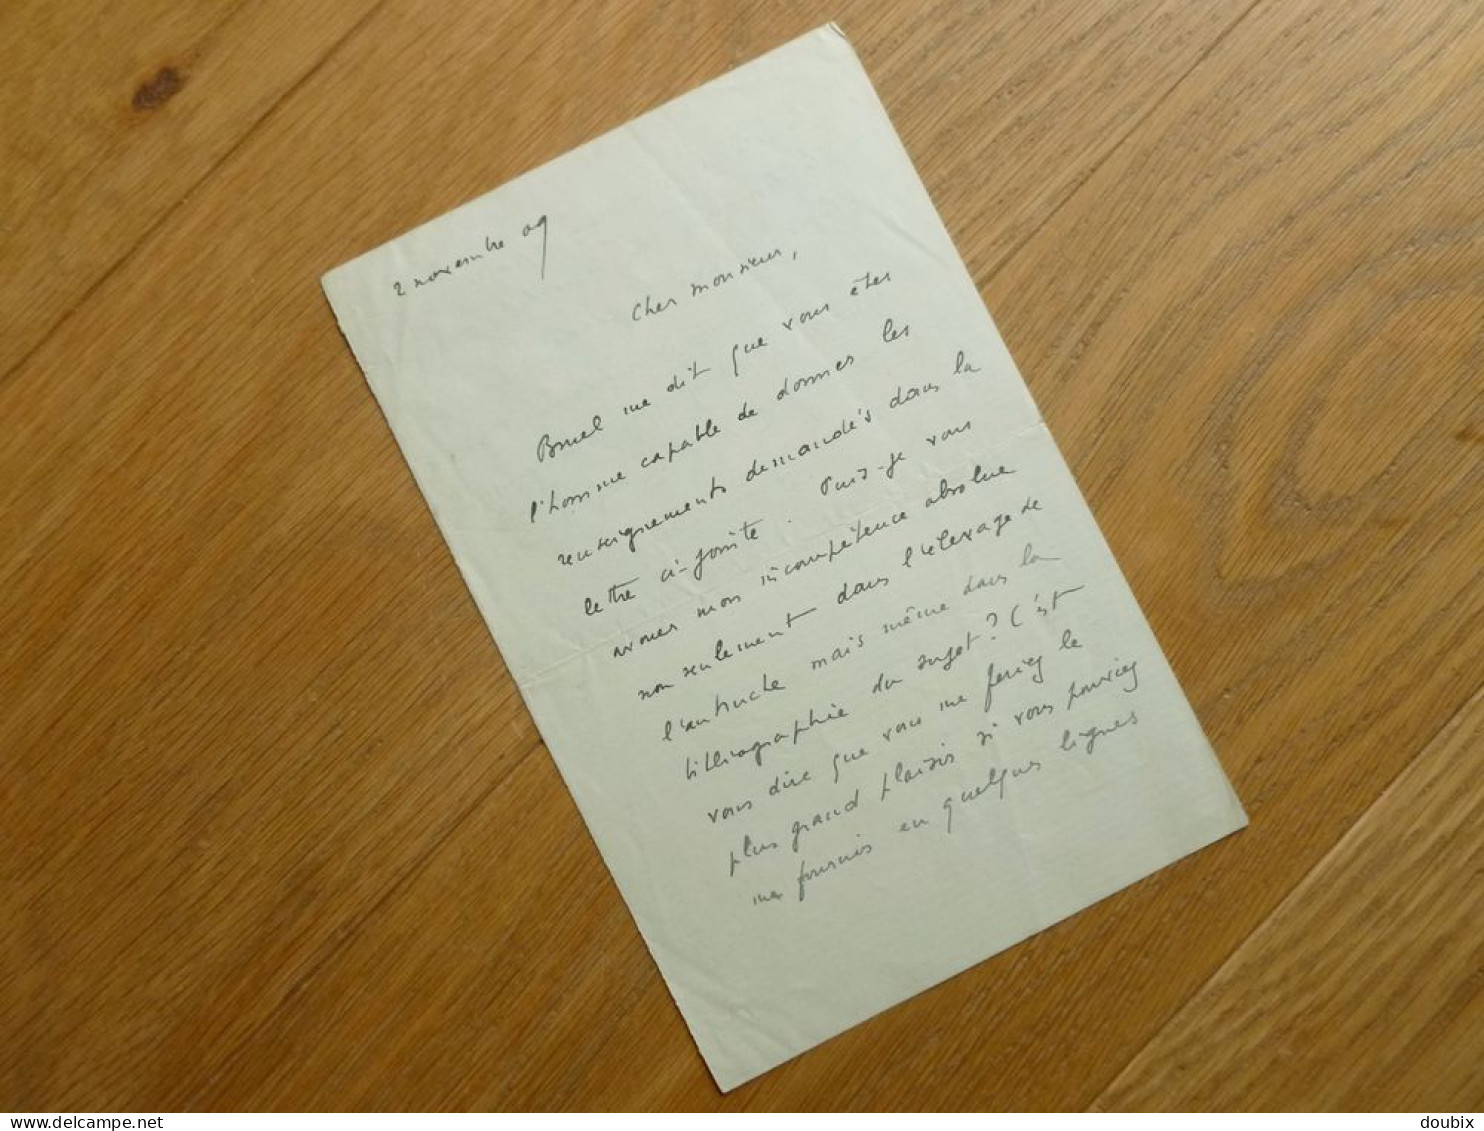 2 novembre 09
Cher monsieur,
Bruel me dit que vous êtes
l'homme capable de donner les
renseignements demandés dans la
lettre ci-jointe. Puis-je vous
avouer mon incompétence absolue
non seulement dans l'élevage de
l'autruche mais même dans la
bibliographie du sujet? C'est
vous dire que vous me feriez le
plus grand plaisir si vous pouviez
me fournir en quelques lignes
www.delcampe.net
doubix